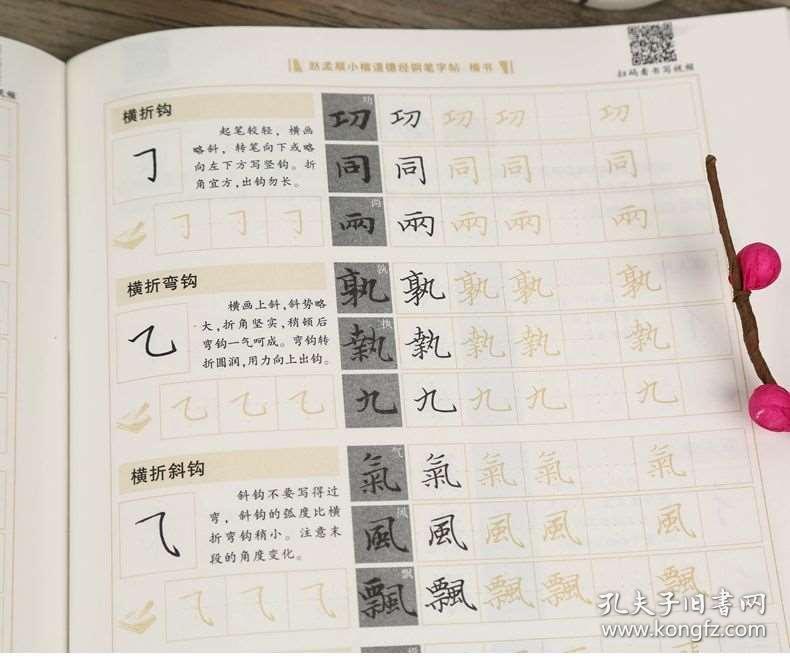 赵孟頫小楷道德经钢笔字帖 楷书
扫码看书写视频
横折钩
起笔较轻，横画
略斜，转笔向下或略
向左下方写竖钩。折
角宜方，出钩勿长。
功 功 功 功 功
同 同 同 同 同
兩 兩 兩 兩 兩
横折弯钩
横画上斜，斜势略
大，折角坚实，稍顿后
弯钩一气呵成。弯钩转
折圆润，用力向上出钩。
孰 孰 孰 孰 孰
执
執 執 執 執 執
九 九 九 九 九
横折斜钩
斜钩不要写得过
弯，斜钩的弧度比横
折弯钩稍小。注意末
段的角度变化。
气
氣 氣 氣 氣 氣
风
風 風 風 風 風
飘
飄 飄 飄 飄 飄
孔夫子旧书网
www.kongfz.com